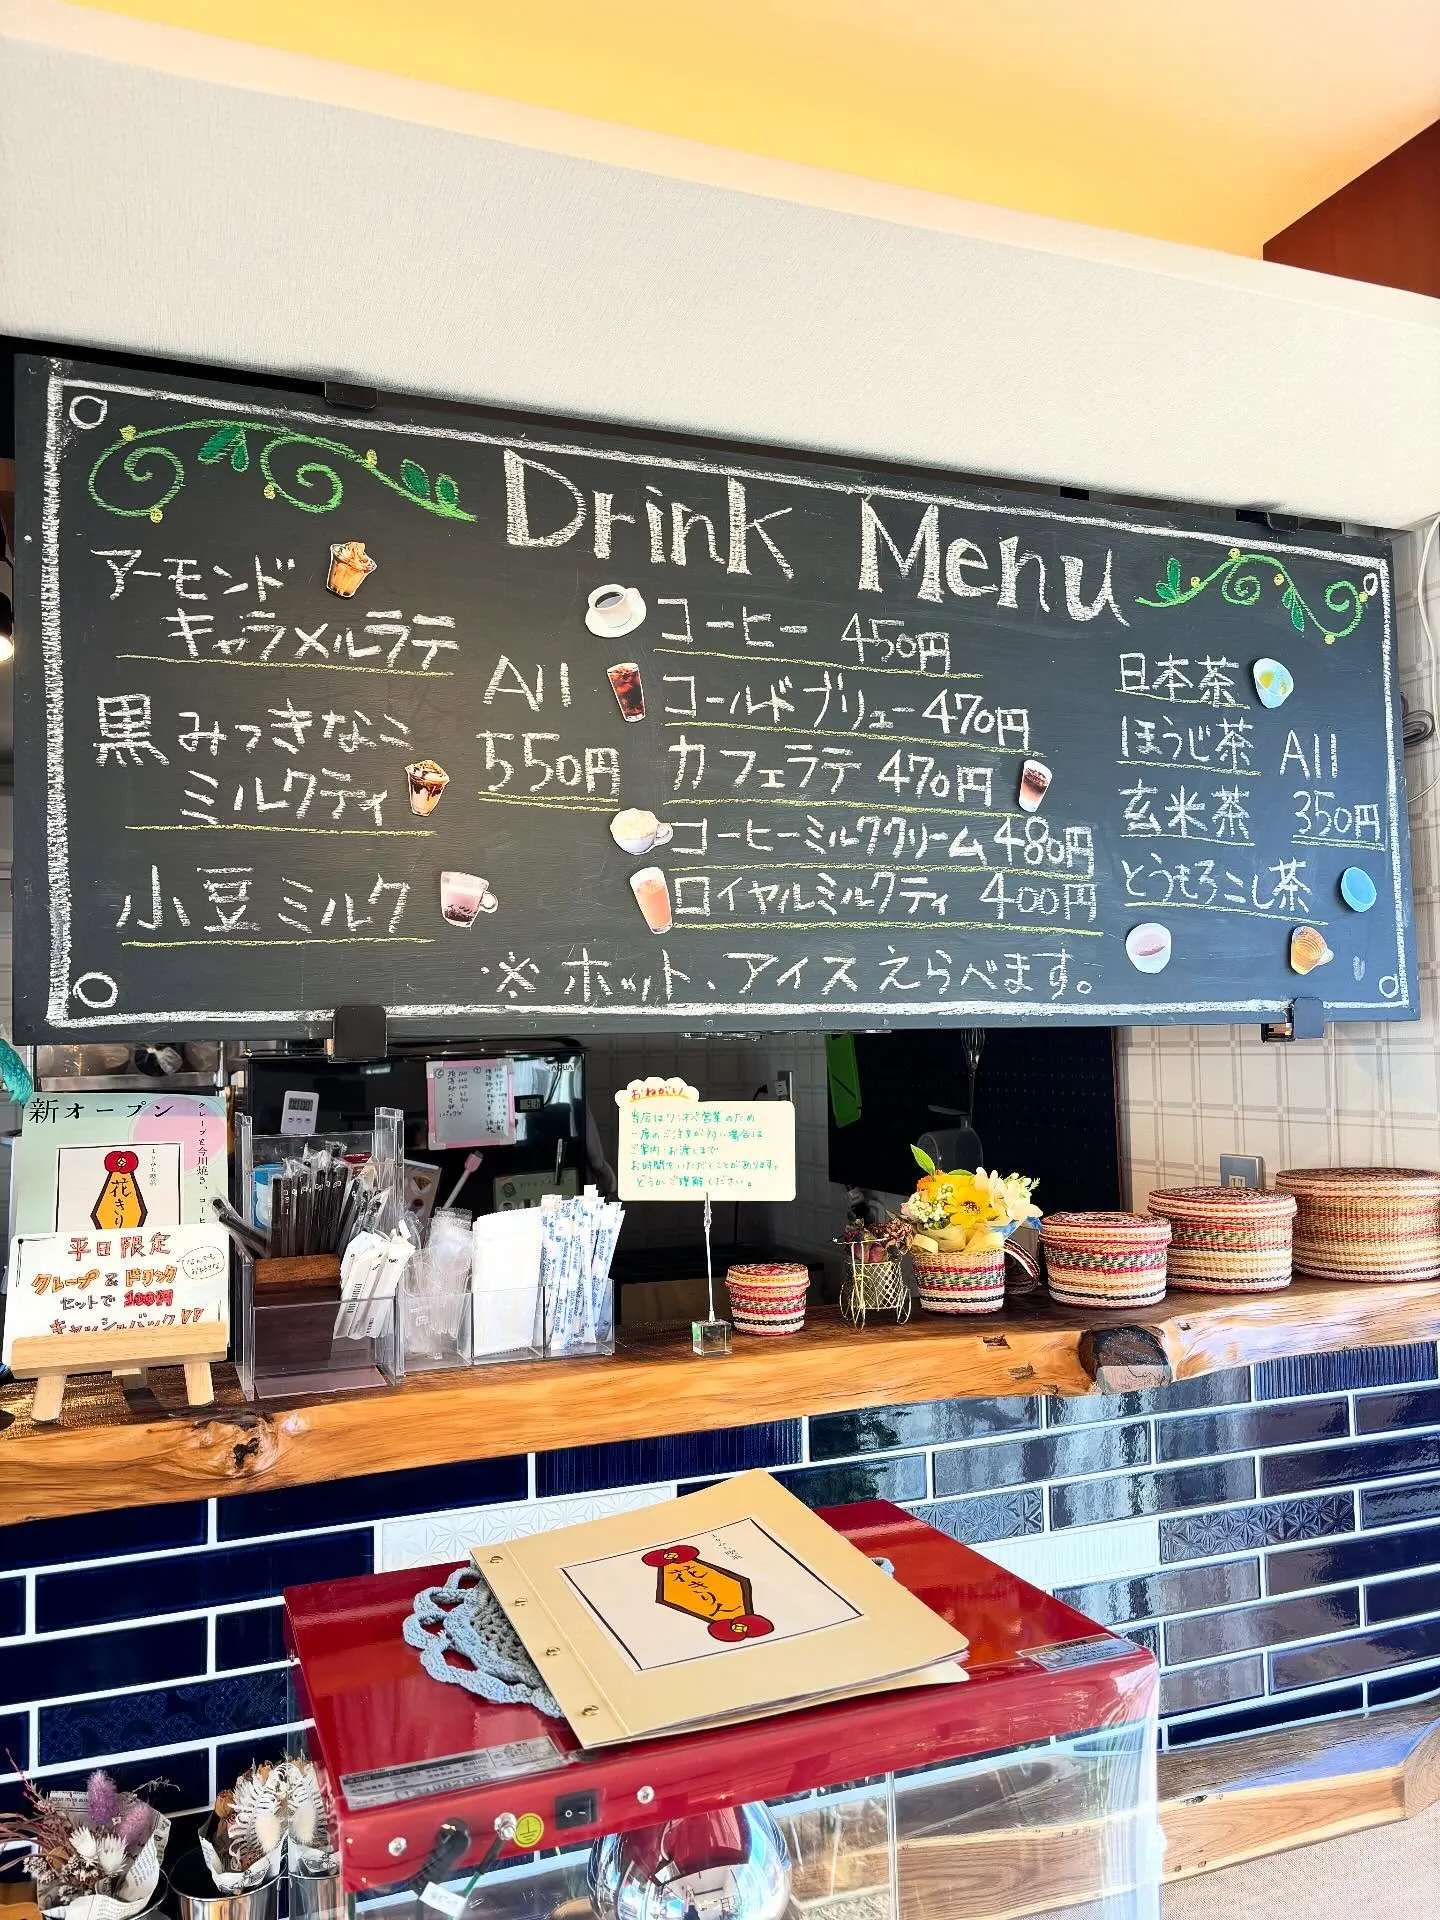 Drink Menu
アーモンド
キャラメルラテ
黒みつきなこ
ミルクティ
小豆ミルク
All
550円
コーヒー 450円
コールドブリュー 470円
カフェラテ 470円
コーヒーミルククリーム 480円
ロイヤルミルクティ 400円
※ホット、アイスえらべます。
日本茶
ほうじ茶
玄米茶
とうもろこし茶
All
350円
AQUA
新オープン
クレープと今川焼き、コーヒ
花きり
平日限定
クレープ&ドリンク
セットで100円
キャッシュバック!!
おねがい
当店はワンオペ営業のため
一度のご注文が多い場合は
ご案内・お渡しまで
お時間をいただくことがあります。
どうかご理解ください。
花きり人